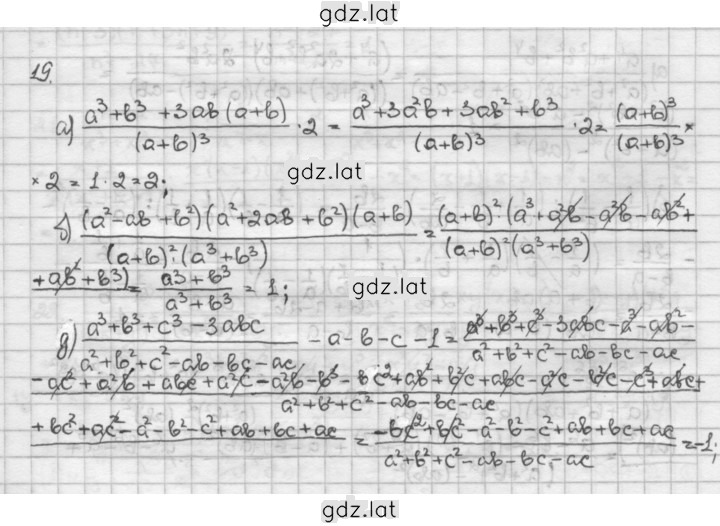 gdz.lat
19.
а) (a³+b³+3ab(a+b))/(a+b)³ · 2 = (a³+3a²b+3ab²+b³)/(a+b)³ · 2 = (a+b)³/(a+b)³ ×
× 2 = 1 · 2 = 2;
gdz.lat
б) ((a²-ab+b²)(a²+2ab+b²)(a+b))/((a+b)²·(a³+b³)) = ((a+b)²·(a³+a²b-a²b-ab²+
+ab²+b³))/((a+b)²(a³+b³)) = (a³+b³)/(a³+b³) = 1;
gdz.lat
д) (a³+b³+c³-3abc)/(a²+b²+c²-ab-bc-ac) -a-b-c-1 = (a³+b³+c³-3abc-a³-ab²-
-ac²+a²b+abc+a²c-a²b-b³-bc²+ab²+b²c+abc-a²c-b²c-c³+abc+
+bc²+ac²-a²-b²-c²+ab+bc+ac)/(a²+b²+c²-ab-bc-ac) = (-bc²+bc²-a²-b²-c²+ab+bc+ac)/(a²+b²+c²-ab-bc-ac) = -1;
gdz.lat